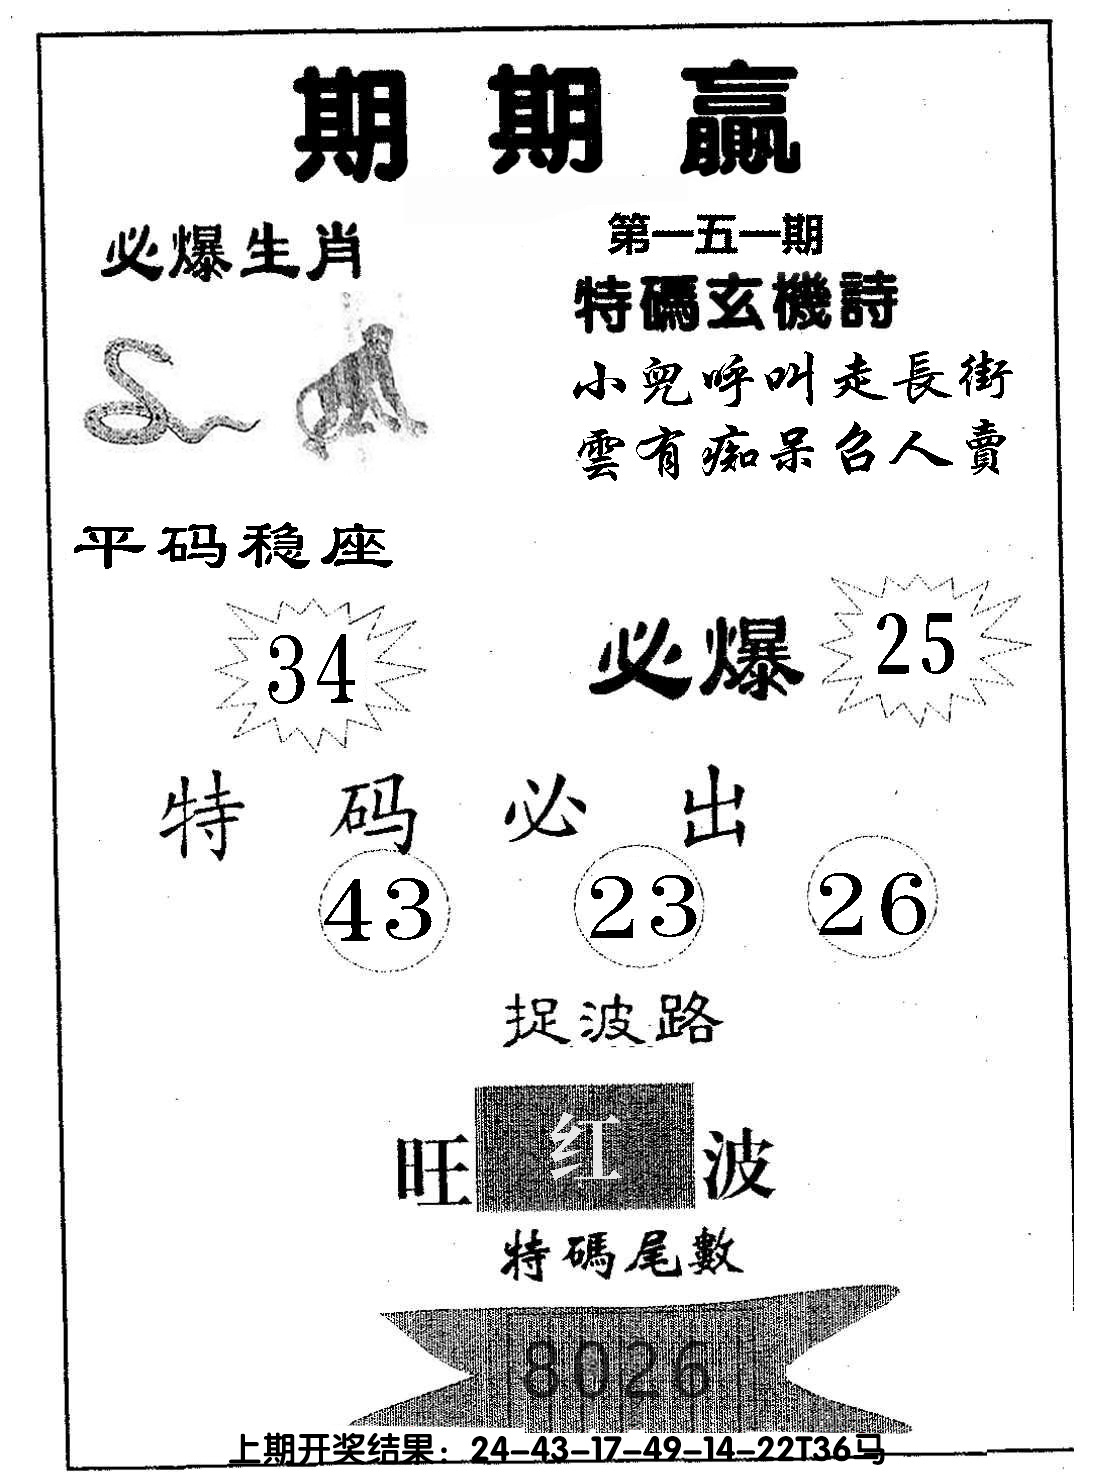 期期赢
必爆生肖
第一五一期
特碼玄機詩
小兒呼叫走長街
雲有痴呆召人賣
平码稳座
34
必爆 25
特码必出
43 23 26
捉波路
旺红波
特碼尾數
8026
上期开奖结果：24-43-17-49-14-22T36马